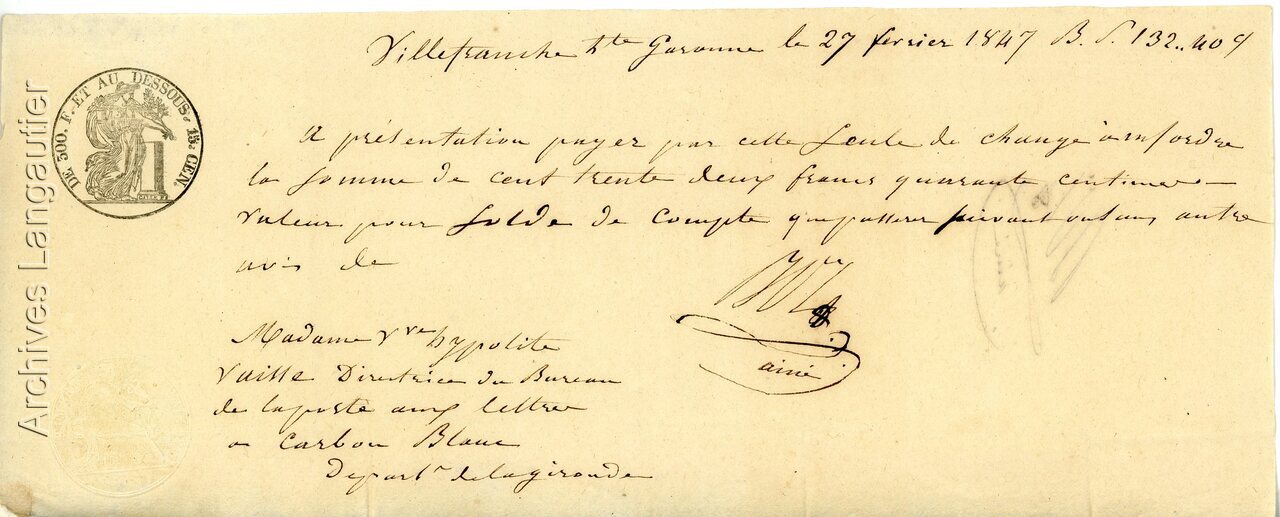 Archives Langautier
DE 500. F. ET AU DESSOUS. 15. CEN.
Villefranche hte Garonne le 27 fevrier 1847 B. P. 132.. 40 c
a présentation payer par cette Seule de change à m/ordre
la Somme de cent trente deux francs quarante centimes
valeur pour Solde de compte que passerez suivant ou sans autre
avis de
ainé
Madame Vve hypolite
Vaisse Directrice du Bureau
de la poste aux lettres
a Carbon Blanc
Depart.t de la gironde